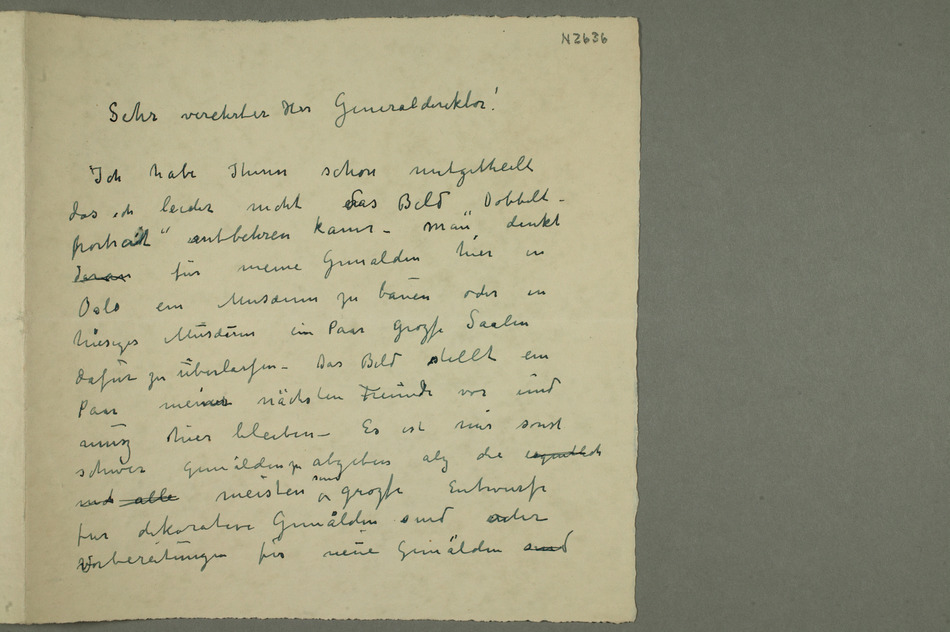 N2636
Sehr verehrter Herr Generaldirektor!
Ich habe Ihnen schon mitgetheilt
das ich leider nicht das Bild Dobbelt-
portrait" entbehren kann – man denkt
daran für meine Gemälden hier in
Oslo ein Museum zu bauen oder in
hiesiges Museum ein Paar grozse Saalen
dafür zu überlassen – Das Bild stellt ein
Paar meiner nächsten Freunde vor und
musz hier bleiben – Es ist mir sonst
schwer Gemälden zu abgeben alz die eigentlich
und alle meisten sind grozse Entwurfe
fur dekorative Gemälden sind oder
Vorbereitungen für neue Gemälden sind